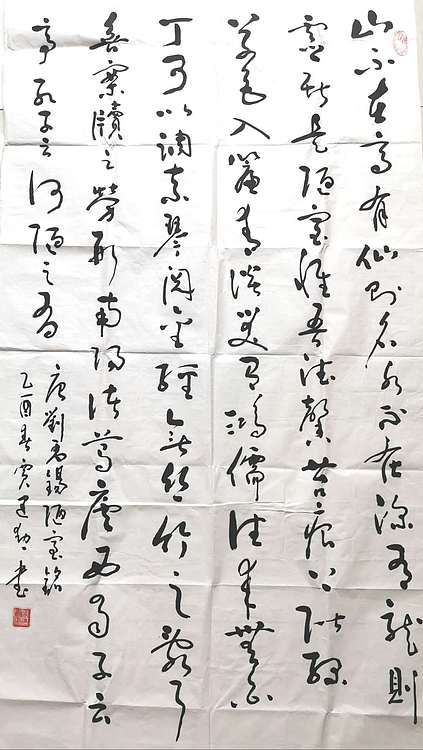 山不在高有仙则名水不在深有龍則
靈斯是陋室惟吾德馨苔痕上階綠
草色入簾青談笑有鴻儒往來無白
丁可以調素琴閱金經無絲竹之亂耳
無案牘之勞形南陽諸葛廬西蜀子云
亭孔子云何陋之有
唐劉禹錫陋室銘
乙酉春書